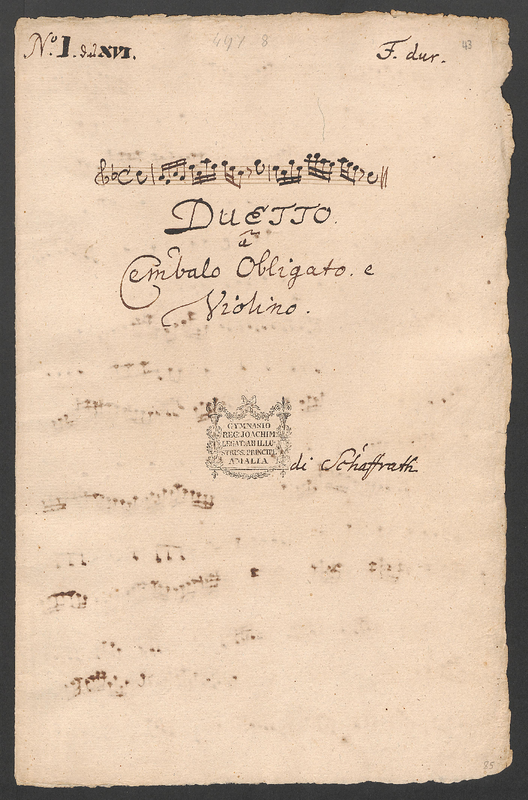 N.º 1. XVI.
497 8
F. dur.
43
DUETTO.
a
Cembalo Obligato. e
Violino.
GYMNASIO
REG. JOACHIM.
LEGAT. AB ILLU-
STRISS. PRINCIPE
AMALIA
di Schaffrath
85